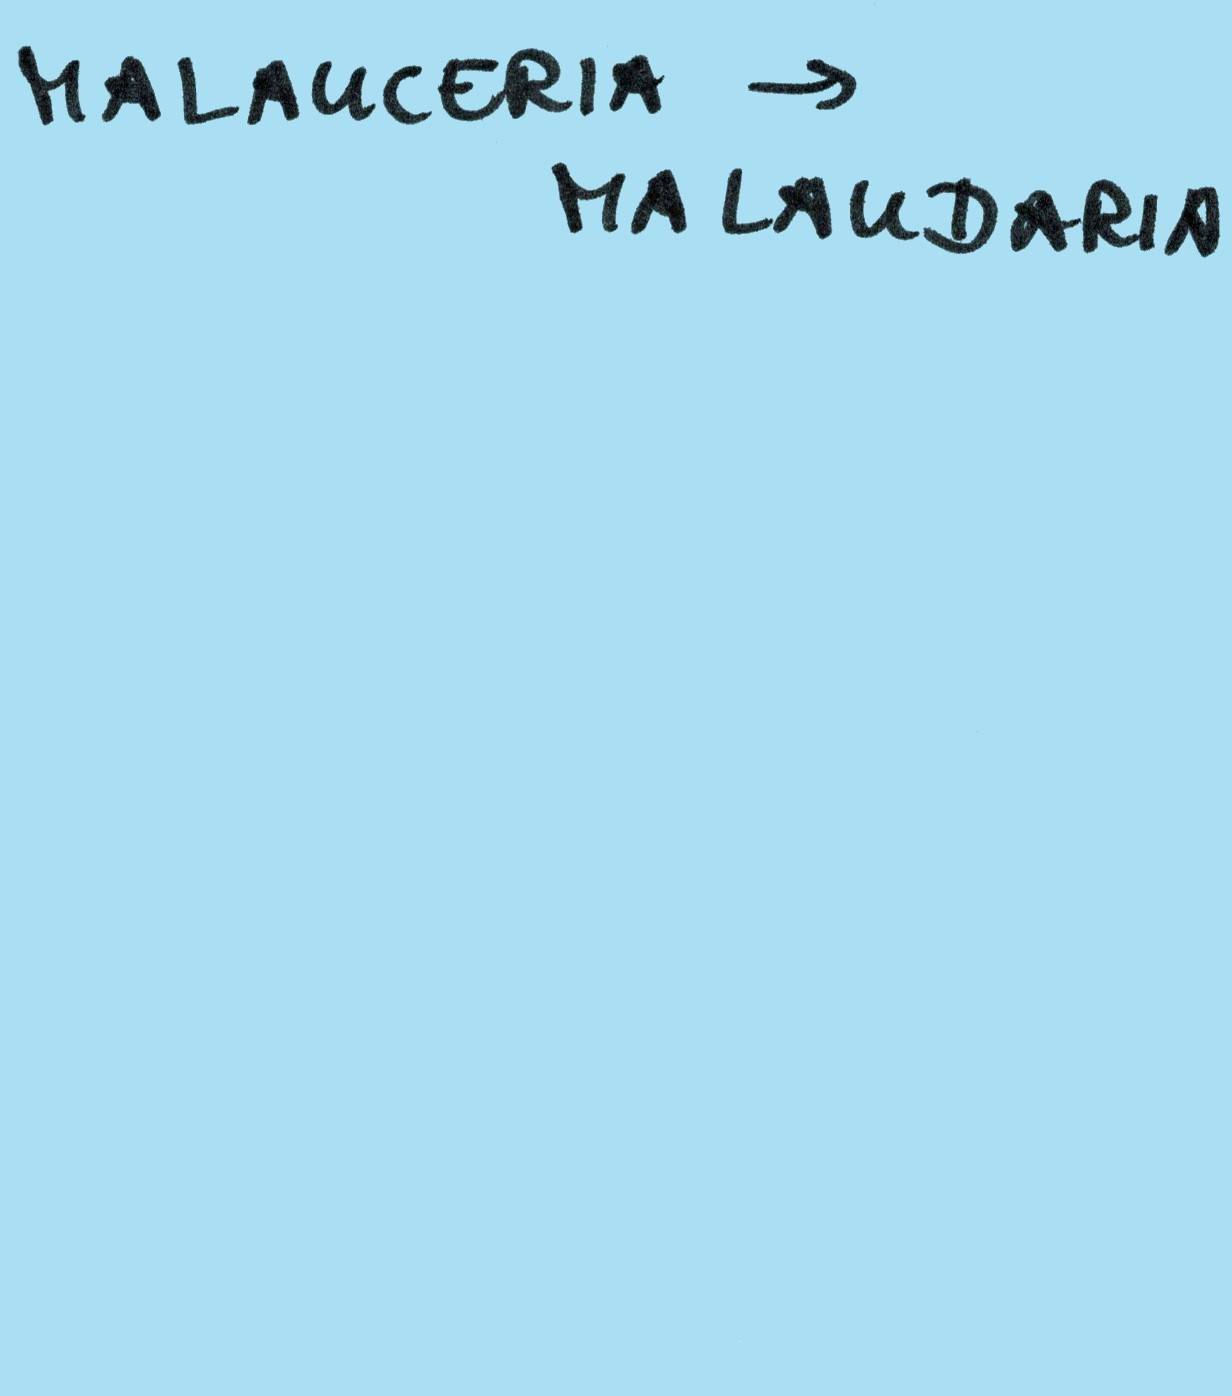 MALAUCERIA →
MALAUDARIA